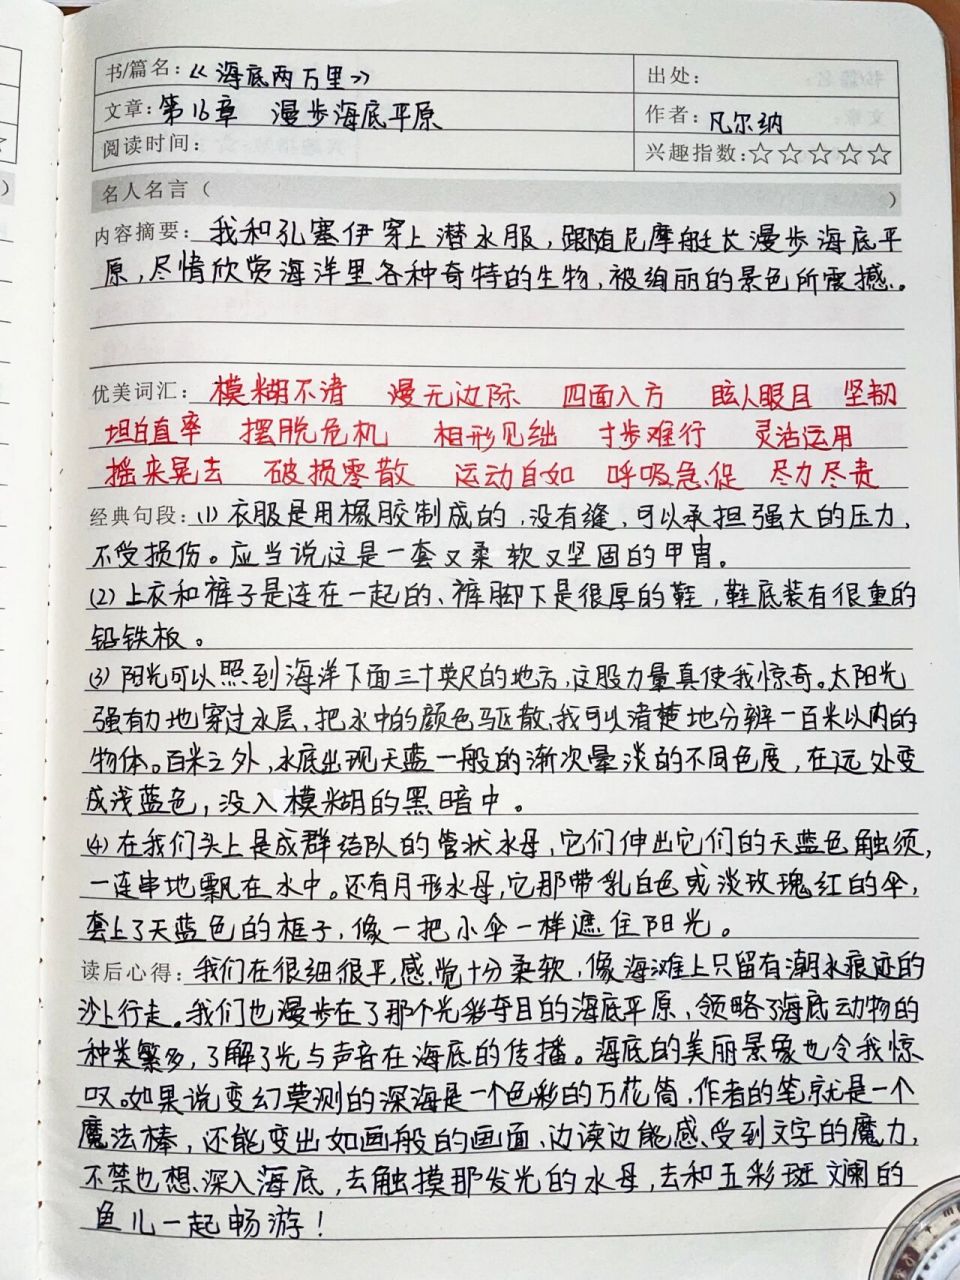 书/篇名：《海底两万里》 出处：
文章：第16章 漫步海底平原 作者：凡尔纳
阅读时间： 兴趣指数：☆☆☆☆☆
名人名言（ ）
内容摘要：我和孔塞伊穿上潜水服，跟随尼摩艇长漫步海底平
原，尽情欣赏海洋里各种奇特的生物，被绚丽的景色所震撼。
优美词汇：模糊不清 漫无边际 四面八方 眩人眼目 坚韧
坦白直率 摆脱危机 相形见绌 寸步难行 灵活运用
摇来晃去 破损零散 运动自如 呼吸急促 尽力尽责
经典句段：（1）衣服是用橡胶制成的，没有缝，可以承担强大的压力，
不受损伤。应当说，这是一套又柔软又坚固的甲胄。
（2）上衣和裤子是连在一起的、裤脚下是很厚的鞋，鞋底装有很重的
铅铁板。
（3）阳光可以照到海洋下面三十英尺的地方，这股力量真使我惊奇。太阳光
强有力地穿过水层，把水中的颜色驱散，我可以清楚地分辨一百米以内的
物体。百米之外，水底出现天蓝一般的渐次晕淡的不同色度，在远处变
成浅蓝色，没入模糊的黑暗中。
（4）在我们头上是成群结队的管状水母，它们伸出它们的天蓝色触须，
一连串地飘在水中。还有月形水母，它那带乳白色或淡玫瑰红的伞，
套上了天蓝色的框子，像一把小伞一样遮住阳光。
读后心得：我们在很细很平，感觉十分柔软，像海滩上只留有潮水痕迹的
沙上行走。我们也漫步在了那个光彩夺目的海底平原，领略了海底动物的
种类繁多，了解了光与声音在海底的传播。海底的美丽景象也令我惊
叹。如果说变幻莫测的深海是一个色彩的万花筒，作者的笔就是一个
魔法棒，还能变出如画般的画面、边读边能感受到文字的魔力，
不禁也想深入海底，去触摸那发光的水母，去和五彩斑斓的
鱼儿一起畅游！